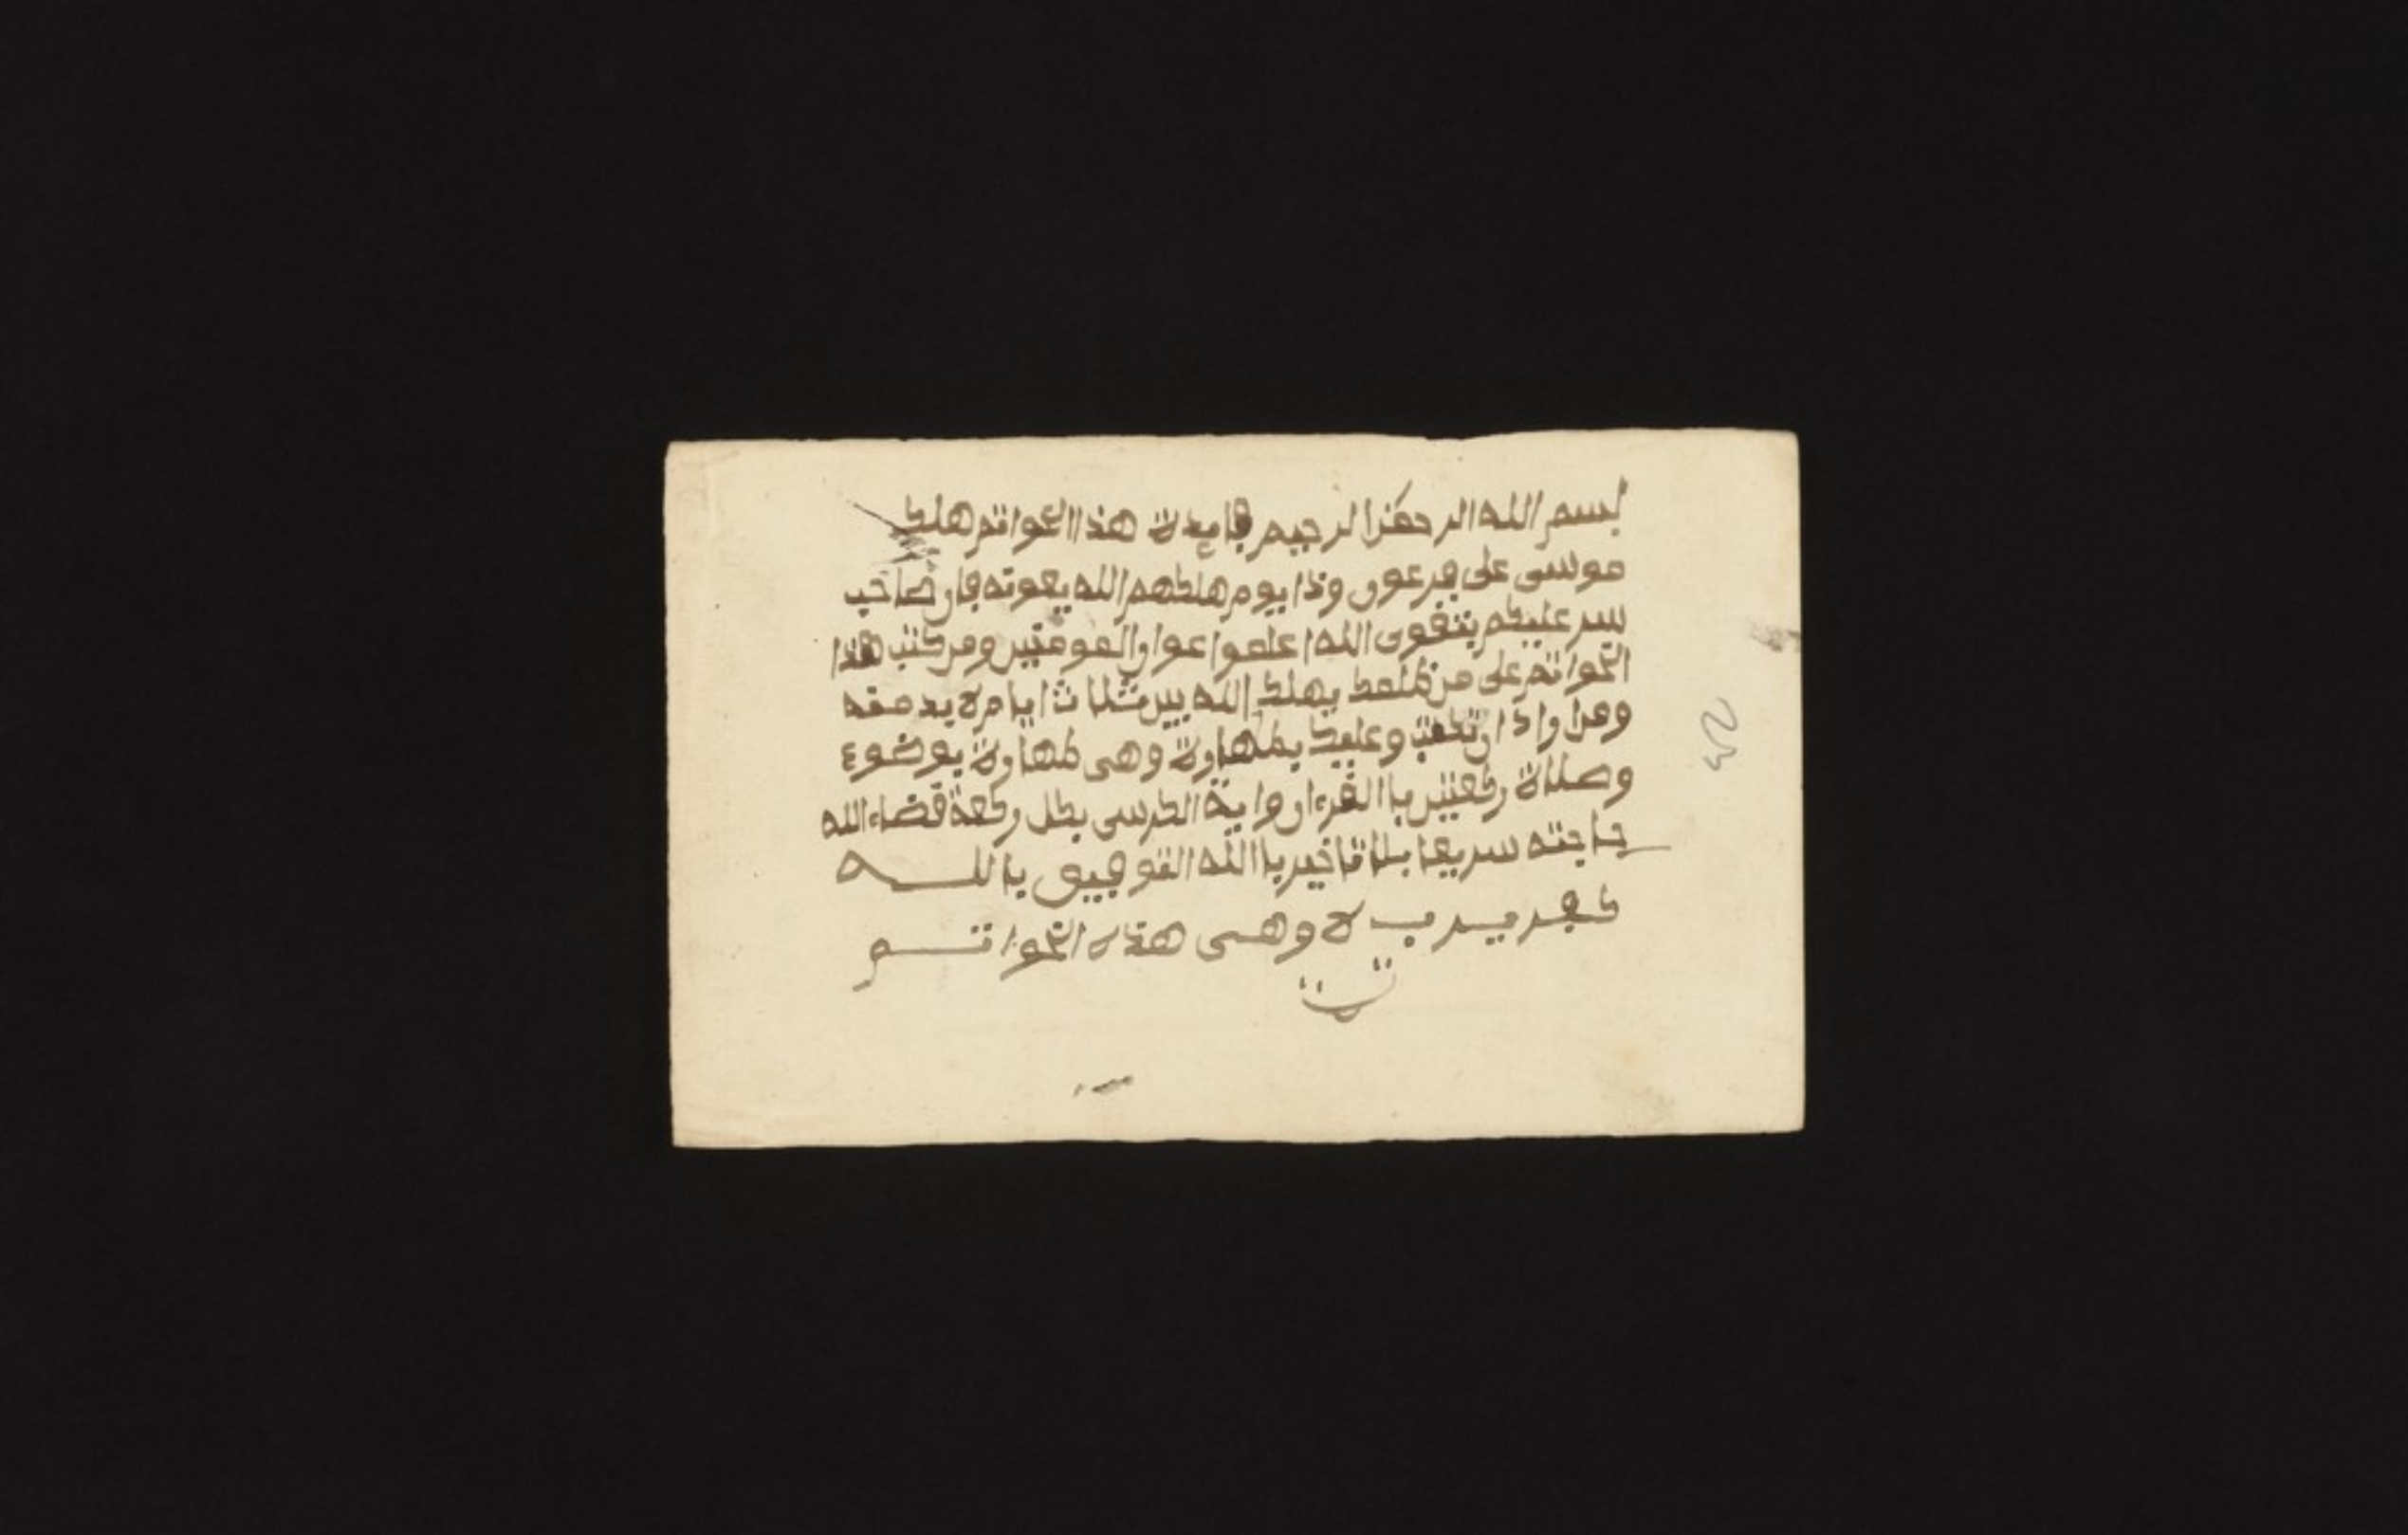 بسم الله الرحمن الرحيم فايدة هذا الخواتم هلك
موسى على فرعون وذا يوم هلكهم الله يعوته فان صاحب
سر عليكم بتقوى الله اعلموا عوان المومنين ومن كتب هذا
الخواتم على من ظلمك يهلك الله بين ثلاث ايام لا يد منه
ومن اراد ان تكتب وعليك بطهارة وهى طهارة بوضوع
وصلاة ركعتين باالقرءان واية الكرسى بكل ركعة قضاء الله
حاجته سريعا بلا تاخير باالله التوفيق بالله
مجرب لا وهى هذه الخواتم